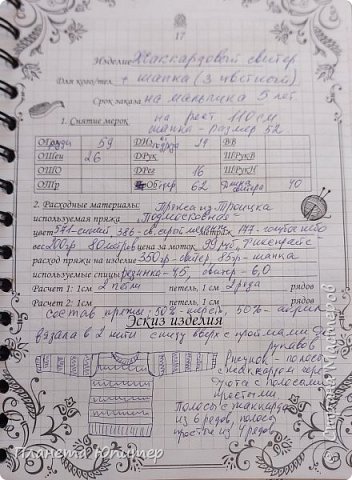 17
Изделие Жаккардовый свитер
Для кого/тел. + шапка (3 цветной)
Срок заказа на мальчика 5 лет
на рост 110 см
1. Снятие мерок шапка - размер 52
ОГруди 59 ДИ 29 ВВ
ОШеи 26 ДРук ШРукВ
ОЩО ДРег 16 ШРукН
ОТр Обгр. 62 свитера 40
2. Расходные материалы: Пряжа из Троицка
используемая пряжа "Подмосковная"
цвет 571-синий, 386-св.серый меланж, 177-голубое небо
вес 200гр 80 метров цена за моток 99 руб.
расход пряжи на изделие 350гр-свитер, 85гр-шапка
используемые спицы резинка-4,5, свитер-6,0
Расчет 1: 1см 2 петли петель, 1 см 2 ряда рядов
Расчет 2: 1см петель, 1 см рядов
состав пряжи: 50%-шерсть, 50%-акрил
Эскиз изделия
вязала в 2 нити снизу вверх с проймами для
рукавов
Рисунок - полосы
с жаккардом чере-
дуются с полосами
простыми
Полосы с жаккардом
из 6 рядов, полосы
простые из 4 рядов
Планета Юпитер
© Страна Мастеров